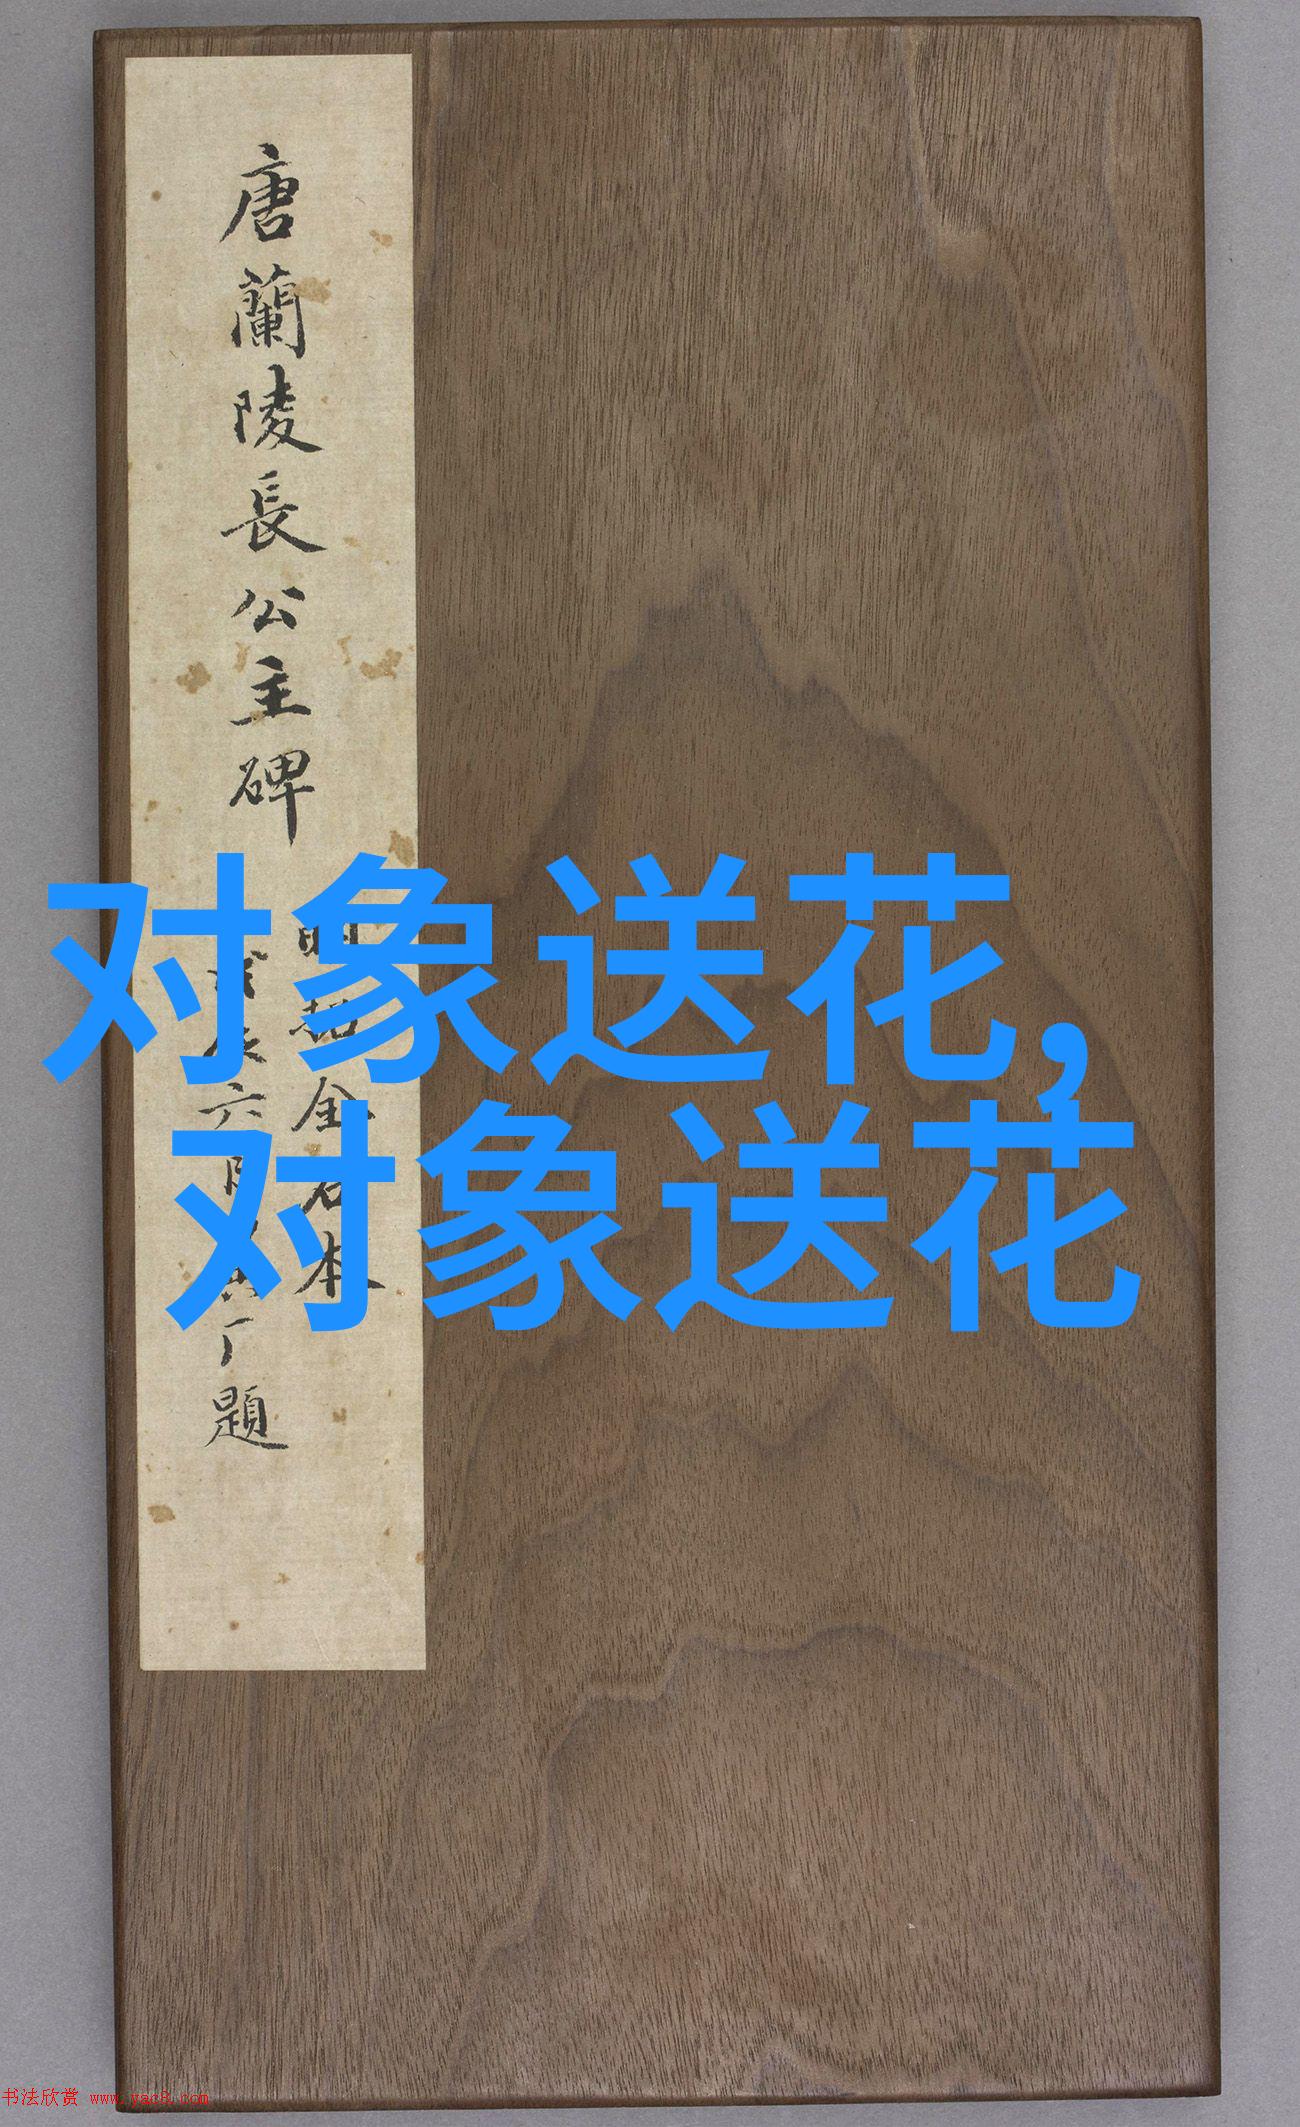 唐蘭陵長公主碑
明拓全石本
六月
題
对象送花,
对象送花
书法欣赏 www.yac8.com